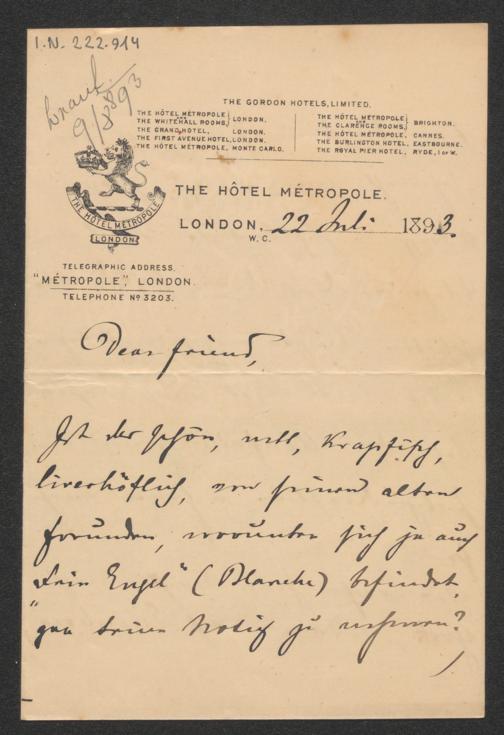 I.N. 222.914
9/8 93
THE GORDON HOTELS, LIMITED.
THE HÔTEL MÉTROPOLE
AND
THE WHITEHALL ROOMS, } LONDON.
THE GRAND HOTEL, LONDON.
THE FIRST AVENUE HOTEL, LONDON.
THE HÔTEL MÉTROPOLE, MONTE CARLO.
THE HÔTEL MÉTROPOLE
AND
THE CLARENCE ROOMS, } BRIGHTON.
THE HÔTEL MÉTROPOLE, CANNES.
THE BURLINGTON HOTEL, EASTBOURNE.
THE ROYAL PIER HOTEL, RYDE, I OF W.
THE HÔTEL MÉTROPOLE
LONDON
THE HÔTEL MÉTROPOLE.
LONDON, 22 Juli 1893.
W.C.
TELEGRAPHIC ADDRESS.
"MÉTROPOLE", LONDON.
TELEPHONE Nº 3203.
Dear friend,
Ist das schön, nett,
von seinen alten
Freunden, worunter sich ja auch
"Dein Engel" (Blanche) befindet,
gar keine Notiz zu nehmen?